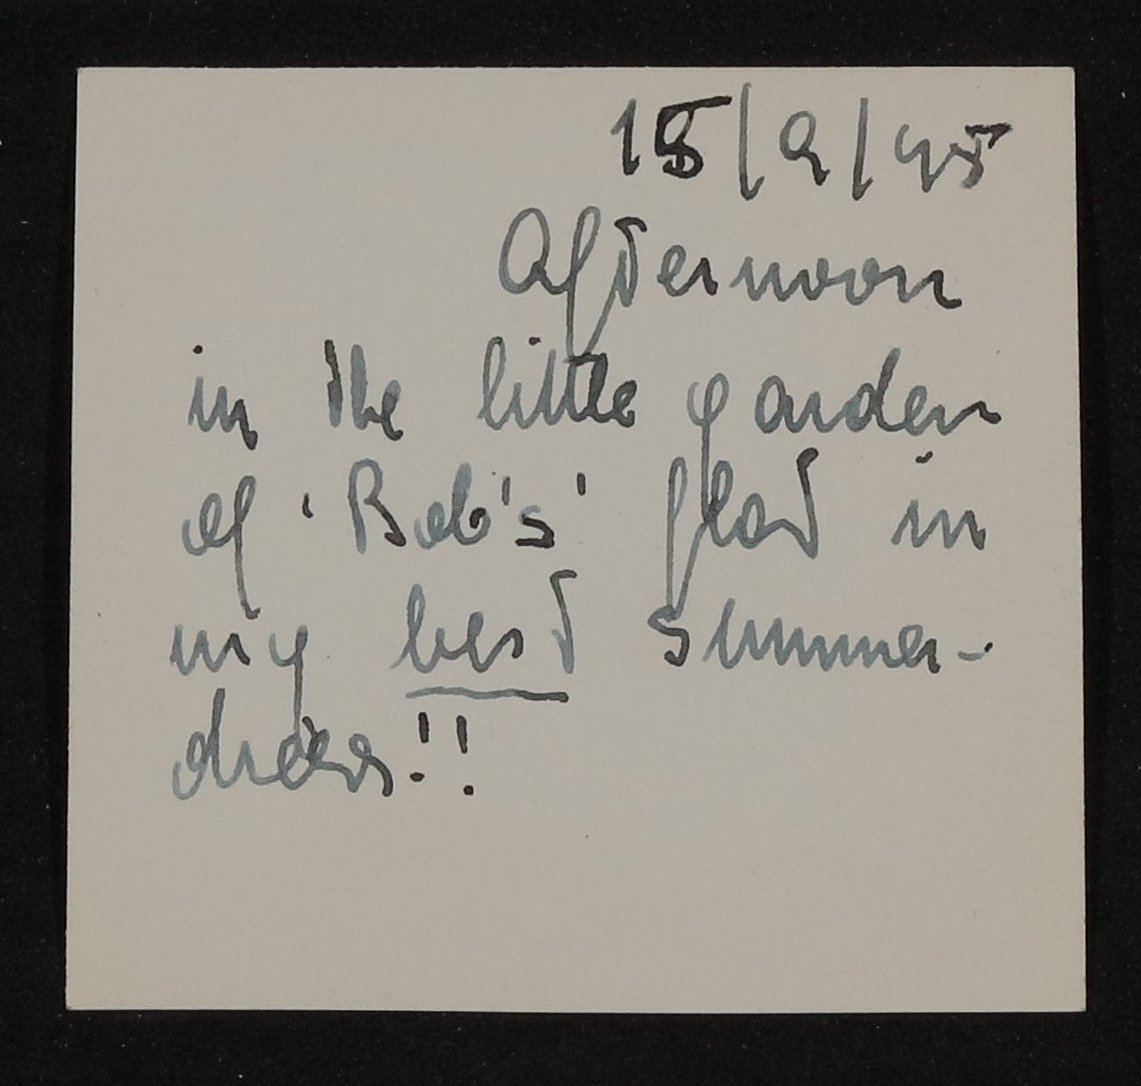 18/9/45
Afternoon
in the little garden
of 'Bob's' flat in
my best summer-
dress!!